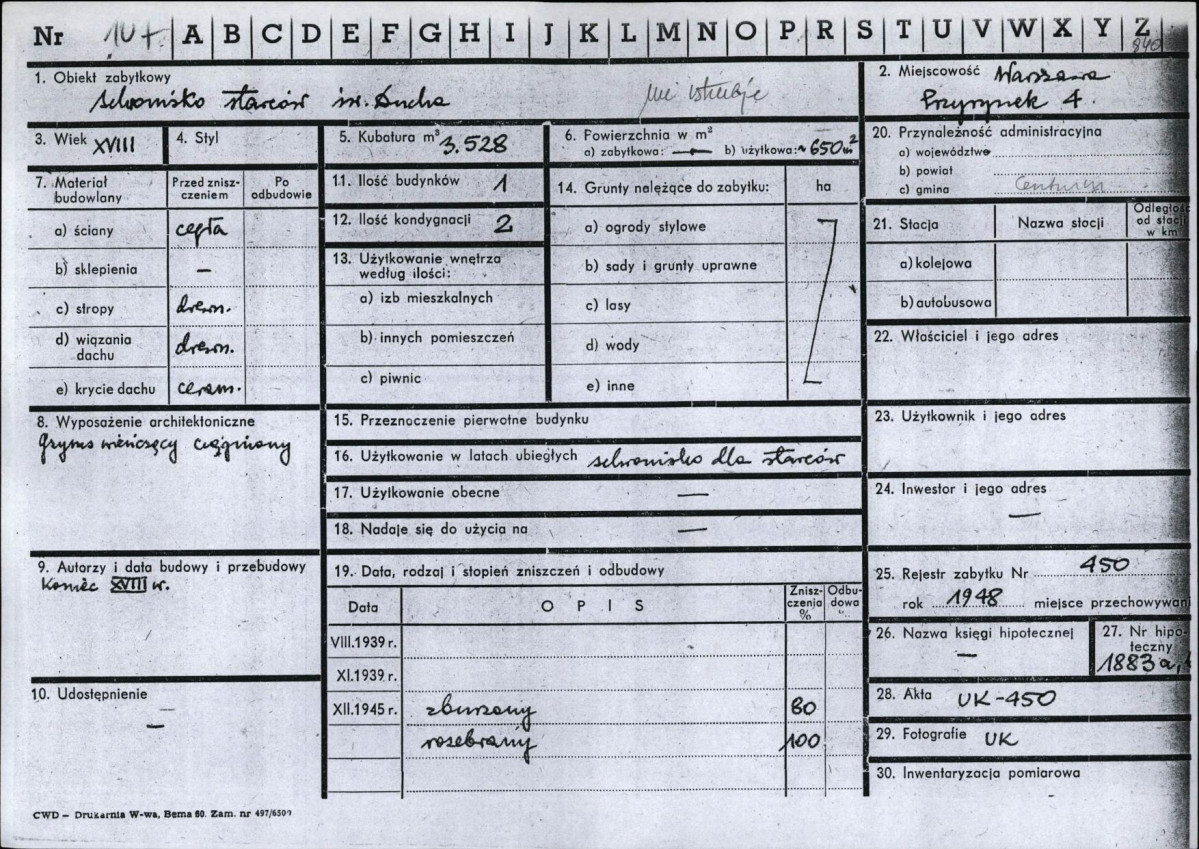 Nr 10+ A B C D E F G H I J K L M N O P R S T U V W X Y Z
840
1. Obiekt zabytkowy
schronisko starców św. Ducha
nie istnieje
2. Miejscowość Warszawa
Przyrynek 4.
3. Wiek XVIII
4. Styl
5. Kubatura m³ 3.528
6. Powierzchnia w m²
a) zabytkowa: — b) użytkowa: ~650m²
20. Przynależność administracyjna
a) województwo
b) powiat
c) gmina
7. Materiał budowlany
Przed zniszczeniem
Po odbudowie
a) ściany cegła
b) sklepienia —
c) stropy drewn.
d) wiązania dachu drewn.
e) krycie dachu ceram.
11. Ilość budynków 1
12. Ilość kondygnacji 2
13. Użytkowanie wnętrza według ilości:
a) izb mieszkalnych
b) innych pomieszczeń
c) piwnic
14. Grunty należące do zabytku: ha
a) ogrody stylowe
b) sady i grunty uprawne
c) lasy
d) wody
e) inne
21. Stacja Nazwa stacji Odległość od stacji w km
a) kolejowa
b) autobusowa
22. Właściciel i jego adres
8. Wyposażenie architektoniczne
Gzyms wieńczący ciągniony
15. Przeznaczenie pierwotne budynku
16. Użytkowanie w latach ubiegłych schronisko dla starców
17. Użytkowanie obecne —
18. Nadaje się do użycia na —
23. Użytkownik i jego adres
24. Inwestor i jego adres
—
9. Autorzy i data budowy i przebudowy
Koniec XVIII w.
10. Udostępnienie
—
19. Data, rodzaj i stopień zniszczeń i odbudowy
Data OPIS Zniszczenia % Odbudowa
VIII.1939 r.
XI.1939 r.
XII.1945 r. zburzony 80
rozebrany 100
25. Rejestr zabytku Nr 450
rok 1948 miejsce przechowywani
26. Nazwa księgi hipotecznej
—
27. Nr hipoteczny
1883a,
28. Akta UK-450
29. Fotografie UK
30. Inwentaryzacja pomiarowa
CWD – Drukarnia W-wa, Bema 60. Zam. nr 497/650